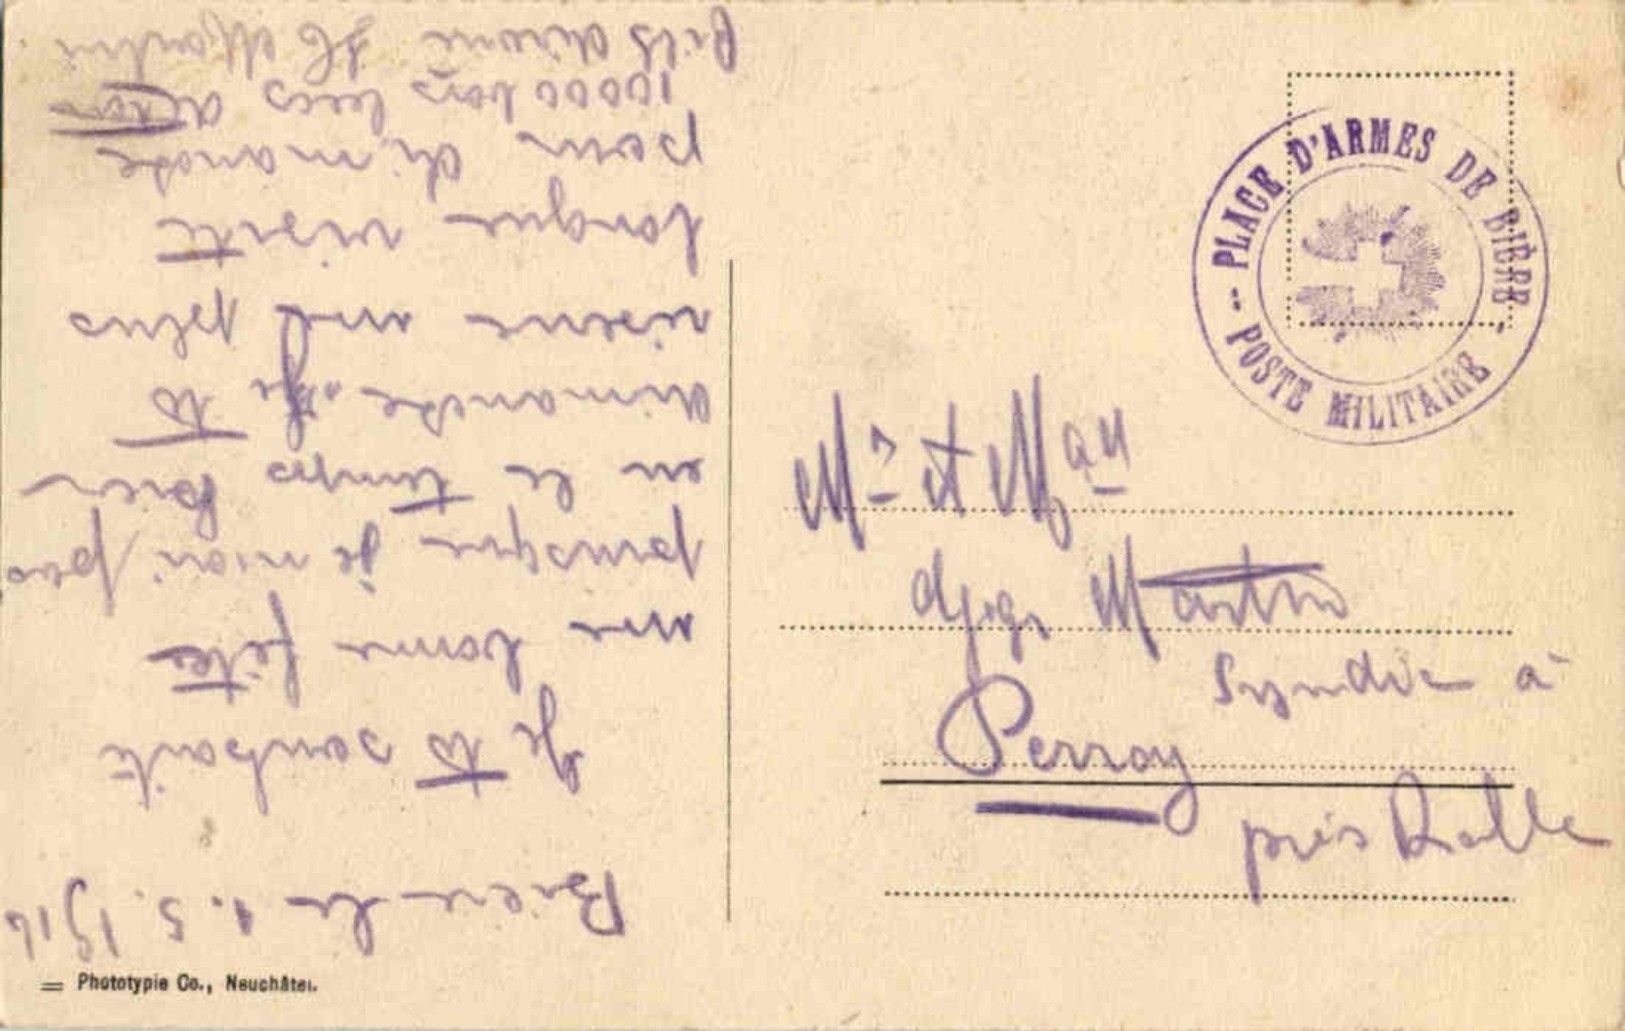 Bière le 1. 5. 1916
Je te souhaite
une bonne fête
puisque je n'ai pas
eu le temps hier
dimanche. Je te
viens une plus
longue visite
pour dimanche
10000 bons becs de ton
fils
PLACE D'ARMES DE BIÈRE
POSTE MILITAIRE
Mr et
Martin
Syndic à
Perroy
près Rolle
Phototypie Co., Neuchâtel.